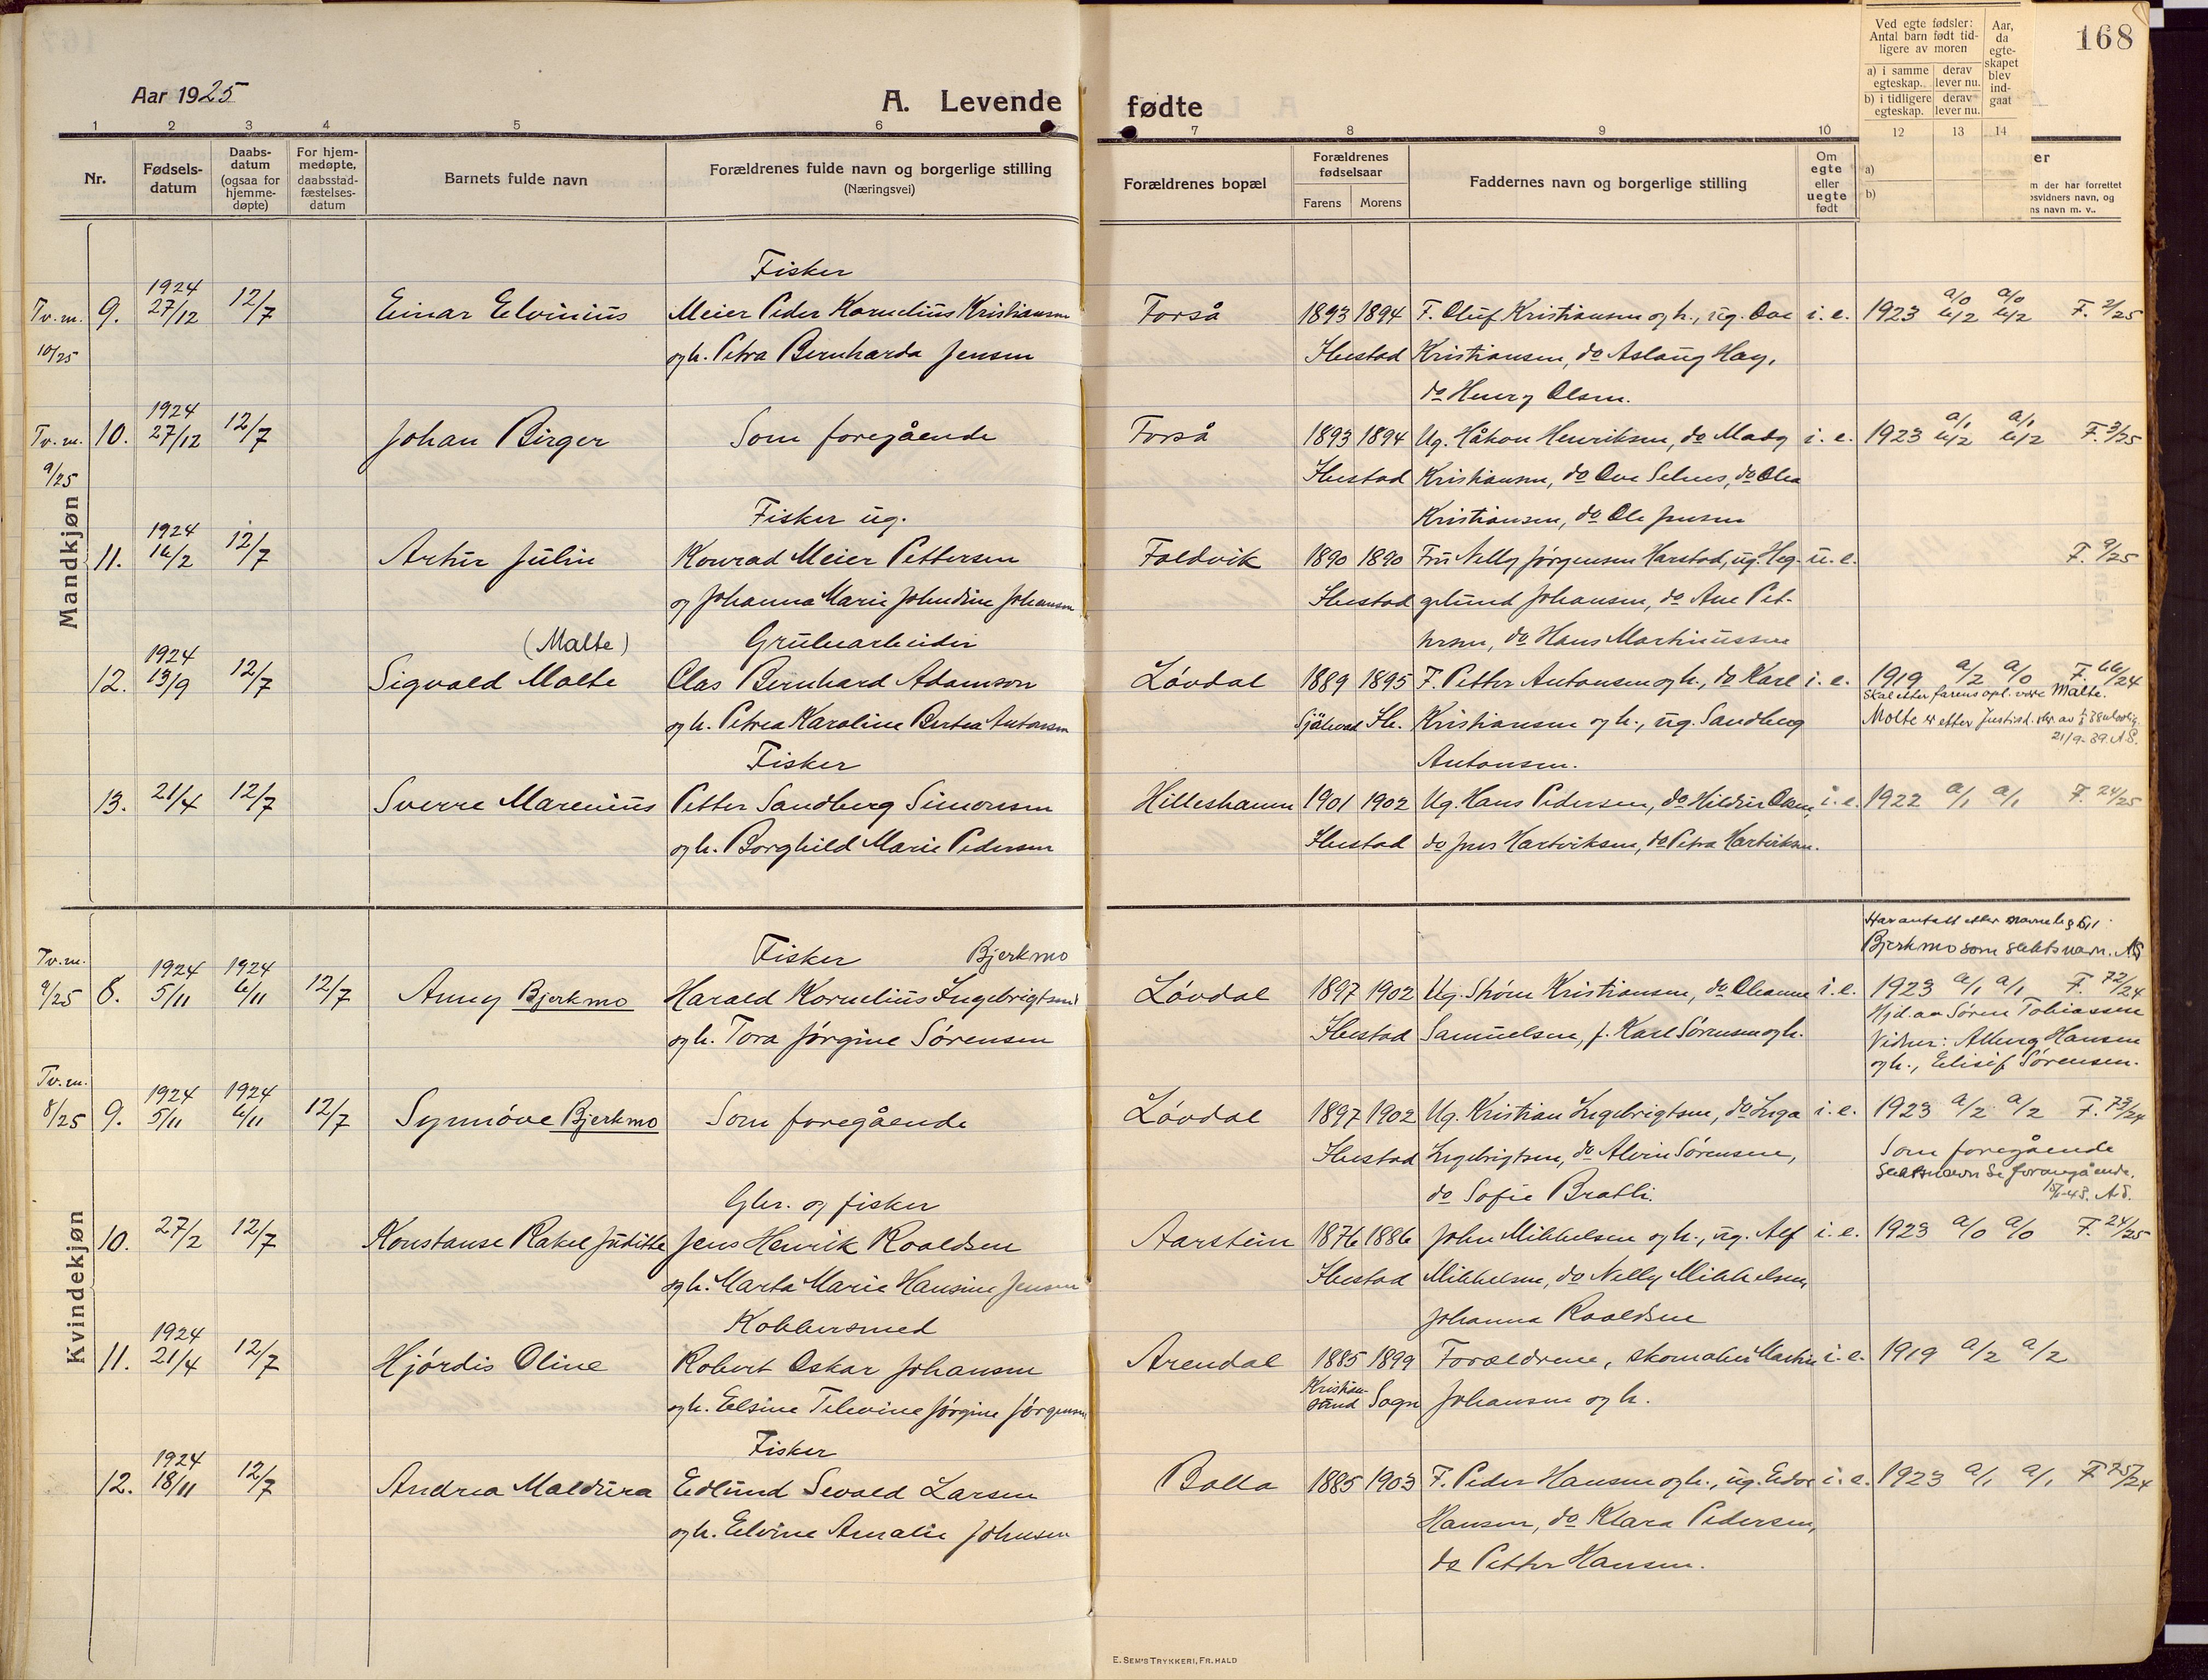 168
Aar 1925
A. Levende fødte
Ved egte fødsler: Antal barn født tidligere av moren
a) i samme egteskap. derav lever nu.
b) i tidligere egteskap. derav lever nu.
Aar, da egteskapet blev indgaat
1 2 3 4 5 6 7 8 9 10 12 13 14
Nr.
Fødselsdatum
Daabsdatum (ogsaa for hjemmedøpte)
For hjemmedøpte, daabsstadfæstelsesdatum
Barnets fulde navn
Forældrenes fulde navn og borgerlige stilling (Næringsvei)
Forældrenes bopæl
Forældrenes fødselsaar
Farens Morens
Faddernes navn og borgerlige stilling
Om egte eller uegte født
a)
b)
er
m der har forrettet
svidners navn, og
ns navn m. v..
Mandkjøn
Fisker
Tv. m. 9. 1924 27/12 12/7 Einar Elvinius Meier Peder Kornelius Kristiansen Forså 1893 1894 F. Oluf Kristiansen og h., ug. Ove i. e. 1923 a/0 b/2 a/0 b/2 F. 2/25
10/25 og h. Petra Bernharda Jensen Ibestad Kristiansen, do Aslaug Hay,
do Henry Olsen.
Tv. m. 10. 1924 27/12 12/7 Johan Birger Som foregående Forså 1893 1894 Ug. Håkon Henriksen, do Mady i. e. 1923 a/1 b/2 a/1 b/2 F. 3/25
9/25 Ibestad Kristiansen, do Ove Selnes, do Olea
Fisker ug. Kristiansen, do Ole Jensen
11. 1924 16/2 12/7 Artur Julin Konrad Meier Pettersen Foldvik 1890 1890 Fru Nelly Jørgensen Harstad, ug. Heg- u. e. F. 9/25
og Johanna Marie Johndine Johansen Ibestad gelund Johansen, do Ane Pet-
(Malte) Grubearbeider tersen, do Hans Martinussen
12. 1924 13/9 12/7 Sigvald Molte Clas Bernhard Adamson Løvdal 1889 1895 F. Petter Antonsen og h., do Karl i. e. 1919 a/2 a/0 F. 66/24
Skal etter farens opl. være Malte.
og h. Petrea Karoline Bertea Antonsen Själevad Ib. Kristiansen og h., ug. Sandberg Molte er etter Justisd. skr. av
21/9-39. A.S.
Fisker Antonsen.
13. 21/4 12/7 Sverre Marenius Petter Sandberg Simonsen Hilleshamn 1901 1902 Ug. Hans Pedersen, do Hildur Olsen, i. e. 1922 a/1 a/1 F. 24/25
og h. Borghild Marie Pedersen Ibestad do Jens Hartviksen, do Petra Hartviksen.
Kvindekjøn
Har antatt etter navnelo § 6,1
Bjerkmo som slektsnavn. AS
Tv. m. Fisker Bjerkmo
9/25 8. 1924 5/11 1924 6/11 12/7 Anny Bjerkmo Harald Kornelius Ingebrigtsen Løvdal 1897 1902 Ug. Strøm Kristiansen, do Oleanne i. e. 1923 a/1 a/1 F. 72/24
Hjd. av Søren Tobiassen
og h. Tora Jørgine Sørensen Ibestad Samuelsen, f. Karl Sørensen og h. Vidner: Alberg Hansen
og h., Elisif Sørensen.
Tv. m.
8/25 9. 1924 5/11 1924 6/11 12/7 Synnøve Bjerkmo Som foregående Løvdal 1897 1902 Ug. Kristian Ingebrigtsen, do Inga i. e. 1923 a/2 a/2 F. 73/24
Ibestad Ingebrigtsen, do Alvin Sørensen, Som foregående
Slektsnavn se forangående.
A.S.
Gbr. og fisker do Sofie Bratli.
10. 27/2 12/7 Konstanse Rakel Juditte Jens Henrik Roaldsen Aarstein 1876 1886 John Mikkelsen og h., ug. Alf i. e. 1923 a/0 a/0 F. 24/25
og h. Marta Marie Hansine Jensen Ibestad Mikkelsen, do Nelly Mikkelsen,
Kobbersmed Johanna Roaldsen
11. 1924 21/4 12/7 Hjørdis Oline Robert Oskar Johansen Arendal 1885 1899 Forældrene, skomaker Martin i. e. 1919 a/2 a/2
og h. Elsine Televine Jørgine Jørgensen Kristiansund Sogn Johansen og h.
Fisker
12. 1924 18/11 12/7 Andrea Maldura Edlund Sevald Larsen Bolla 1885 1903 F. Peder Hansen og h., ug. Edor i. e. 1923 a/1 a/1 F. 75/24
og h. Elvine Amalie Johnsen Hansen, do Klara Pedersen,
do Petter Hansen.
E. SEM'S TRYKKERI, FR.HALD